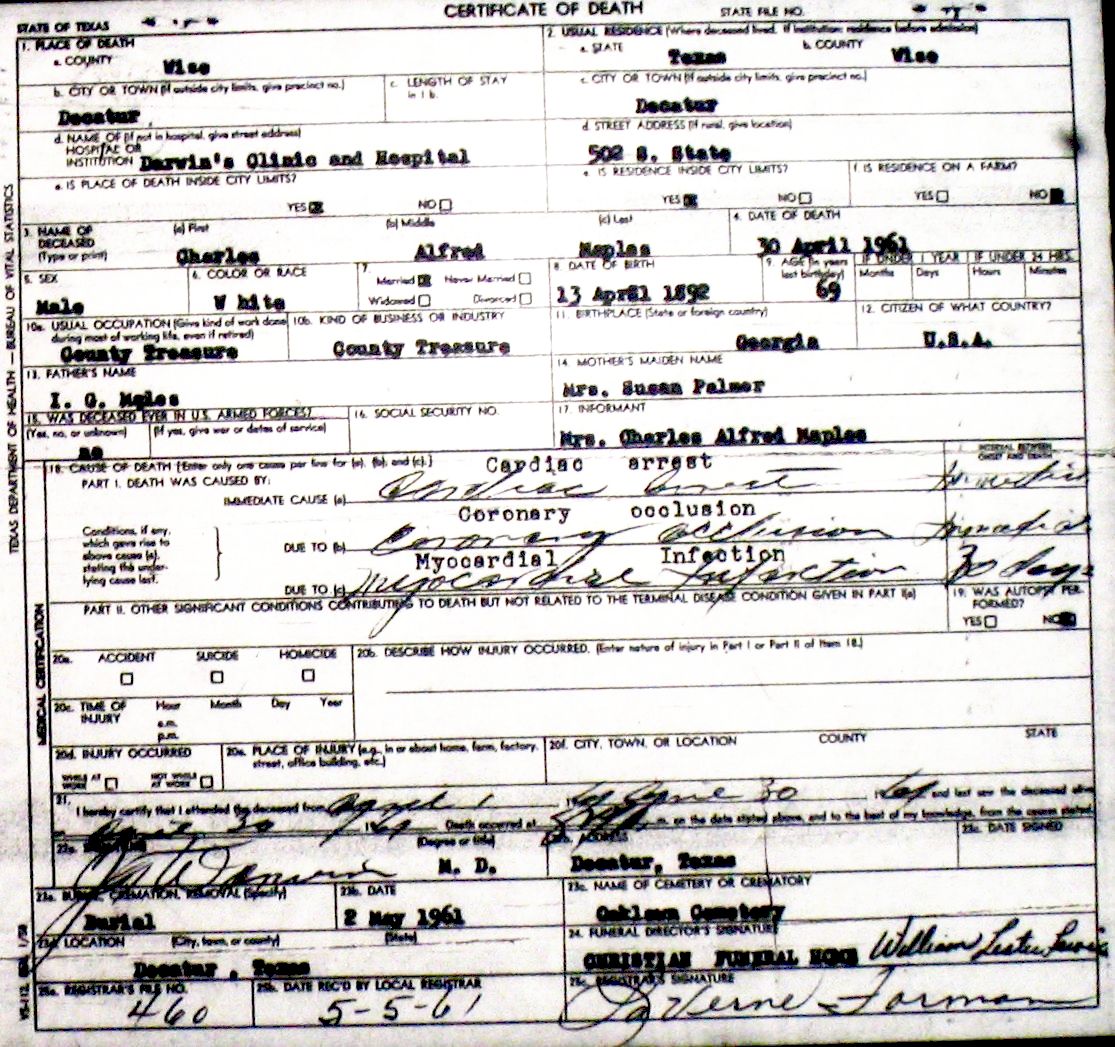 CERTIFICATE OF DEATH
STATE OF TEXAS
STATE FILE NO.
1. PLACE OF DEATH
a. COUNTY
Wise
2. USUAL RESIDENCE (Where deceased lived. If institution: residence before admission)
a. STATE
Texas
b. COUNTY
Wise
b. CITY OR TOWN (If outside city limits, give precinct no.)
Decatur,
c. LENGTH OF STAY
in 1 b.
c. CITY OR TOWN (If outside city limits, give precinct no.)
Decatur
d. NAME OF (If not in hospital, give street address)
HOSPITAL OR
INSTITUTION Darwin's Clinic and Hospital
d. STREET ADDRESS (If rural, give location)
502 S. State
e. IS PLACE OF DEATH INSIDE CITY LIMITS?
YES NO
e. IS RESIDENCE INSIDE CITY LIMITS?
YES NO
f. IS RESIDENCE ON A FARM?
YES NO
3. NAME OF
DECEASED
(Type or print)
(a) First
Charles
(b) Middle
Alfred
(c) Last
Maples
4. DATE OF DEATH
30 April 1961
5. SEX
Male
6. COLOR OR RACE
W hite
7.
Married Never Married
Widowed Divorced
8. DATE OF BIRTH
13 April 1892
9. AGE (In years
last birthday)
69
IF UNDER 1 YEAR
Months Days
IF UNDER 24 HRS.
Hours Minutes
10a. USUAL OCCUPATION (Give kind of work done
during most of working life, even if retired)
County Treasure
10b. KIND OF BUSINESS OR INDUSTRY
County Treasure
11. BIRTHPLACE (State or foreign country)
Georgia
12. CITIZEN OF WHAT COUNTRY?
U.S.A.
13. FATHER'S NAME
I. G. Mples
14. MOTHER'S MAIDEN NAME
Mrs. Susan Palmer
15. WAS DECEASED EVER IN U.S. ARMED FORCES?
(Yes, no, or unknown) (If yes, give war or dates of service)
no
16. SOCIAL SECURITY NO.
17. INFORMANT
Mrs. Charles Alfred Maples
18. CAUSE OF DEATH [Enter only one cause per line for (a), (b), and (c).]
INTERVAL BETWEEN
ONSET AND DEATH
PART I. DEATH WAS CAUSED BY:
Cardiac arrest
IMMEDIATE CAUSE (a) Cardiac arrest
Coronary occlusion
Conditions, if any,
which gave rise to
above cause (a),
stating the under-
lying cause last.
DUE TO (b) Coronary occlusion
Myocardial Infection
DUE TO (c) Myocardial Infarction 30 days
PART II. OTHER SIGNIFICANT CONDITIONS CONTRIBUTING TO DEATH BUT NOT RELATED TO THE TERMINAL DISEASE CONDITION GIVEN IN PART I(a)
19. WAS AUTOPSY PER-
FORMED?
YES NO
20a.
ACCIDENT SUICIDE HOMICIDE
20b. DESCRIBE HOW INJURY OCCURRED. (Enter nature of injury in Part I or Part II of Item 18.)
20c. TIME OF
INJURY
Hour Month Day Year
a.m.
p.m.
20d. INJURY OCCURRED
WHILE AT
WORK
NOT WHILE
AT WORK
20e. PLACE OF INJURY (e.g., in or about home, farm, factory,
street, office building, etc.)
20f. CITY, TOWN, OR LOCATION COUNTY STATE
21.
I hereby certify that I attended the deceased from April 1 April 30 and last saw the deceased alive
April 30 Death occurred at m. on the date stated above, and to the best of my knowledge, from the causes stated.
22a. (Degree or title)
M. D.
22b. ADDRESS
Decatur, Texas
22c. DATE SIGNED
23a. BURIAL, CREMATION, REMOVAL (Specify)
Burial
23b. DATE
2 May 1961
23c. NAME OF CEMETERY OR CREMATORY
Oaklawn Cemetery
23d. LOCATION (City, town, or county) (State)
Decatur , Texas
24. FUNERAL DIRECTOR'S SIGNATURE
CHRISTIAN FUNERAL HOME William Lester
25a. REGISTRAR'S FILE NO.
460
25b. DATE REC'D BY LOCAL REGISTRAR
5-5-61
25c. REGISTRAR'S SIGNATURE
LaVerne Forman
TEXAS DEPARTMENT OF HEALTH — BUREAU OF VITAL STATISTICS
MEDICAL CERTIFICATION